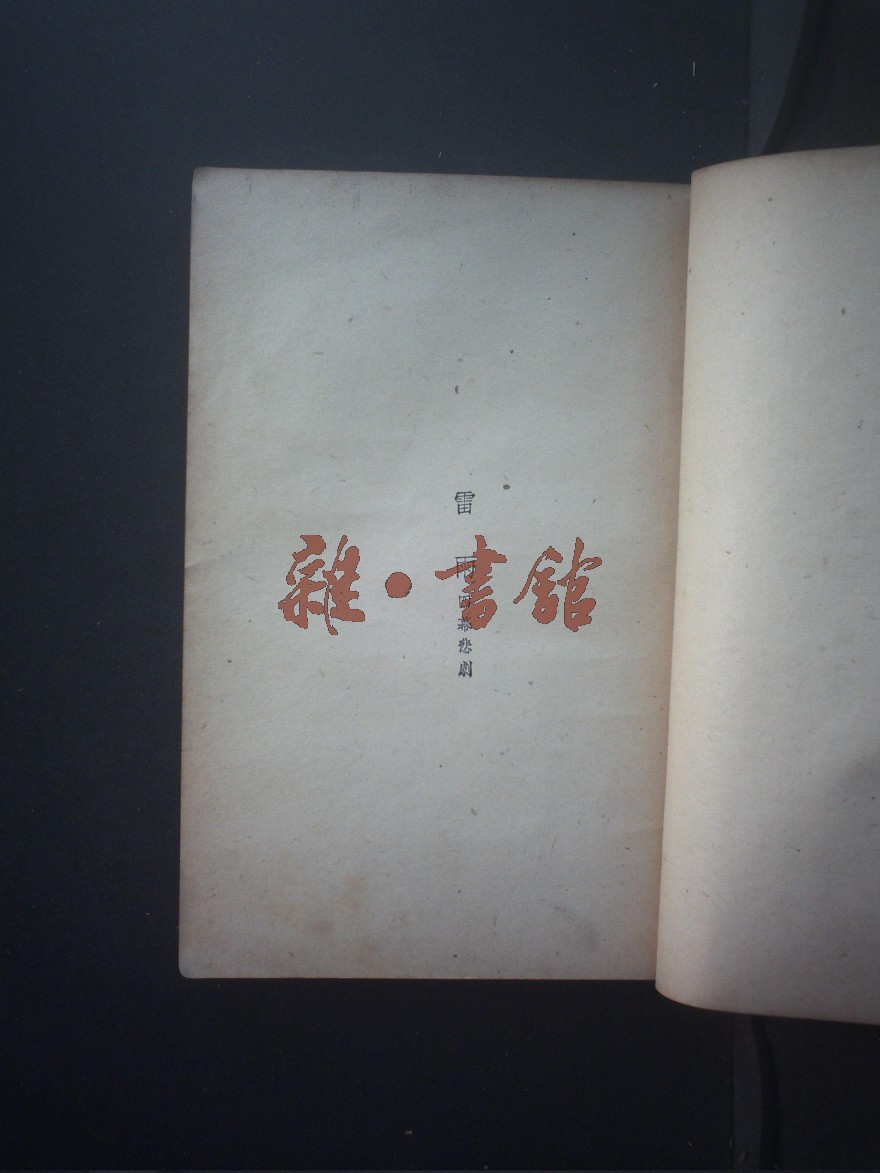 雷雨
四幕悲劇
雜·書館